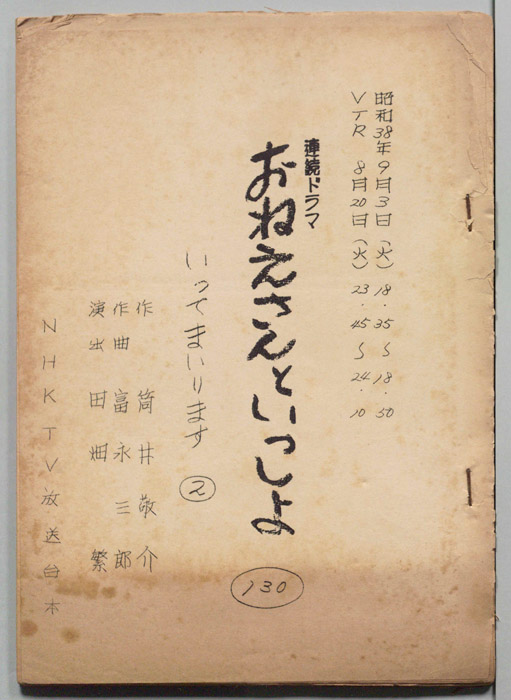 昭和38年9月3日（火）18.35〜18.50
VTR 8月20日（火）23.45〜24.10
連続ドラマ
おねえさんといっしょ
いってまいります ②
130
作 筒井敬介
作曲 富永三郎
演出 田畑繁
NHKTV放送台本